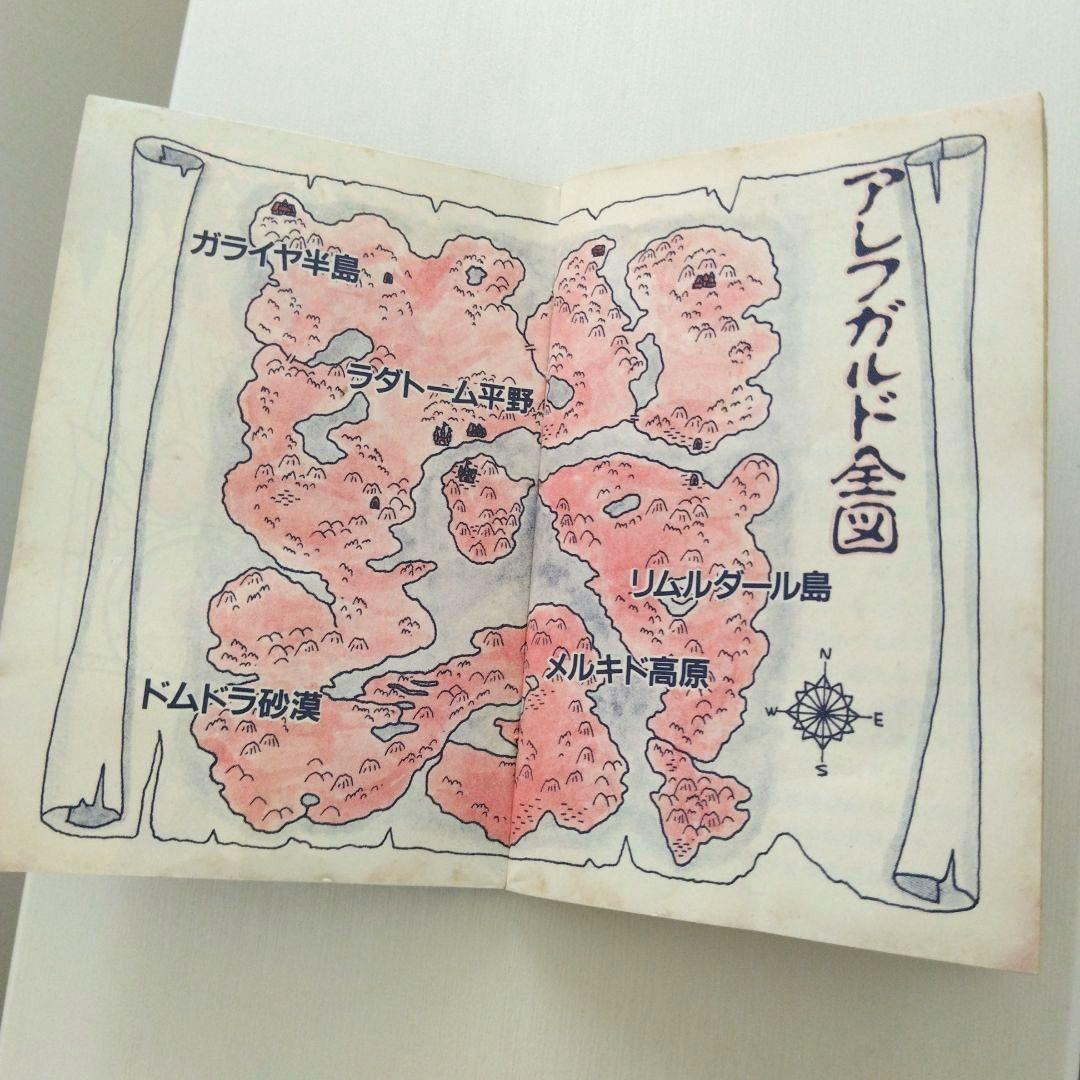 アレフガルド全図
ガライヤ半島
ラダトーム平野
リムルダール島
メルキド高原
ドムドラ砂漠
N
W
E
S